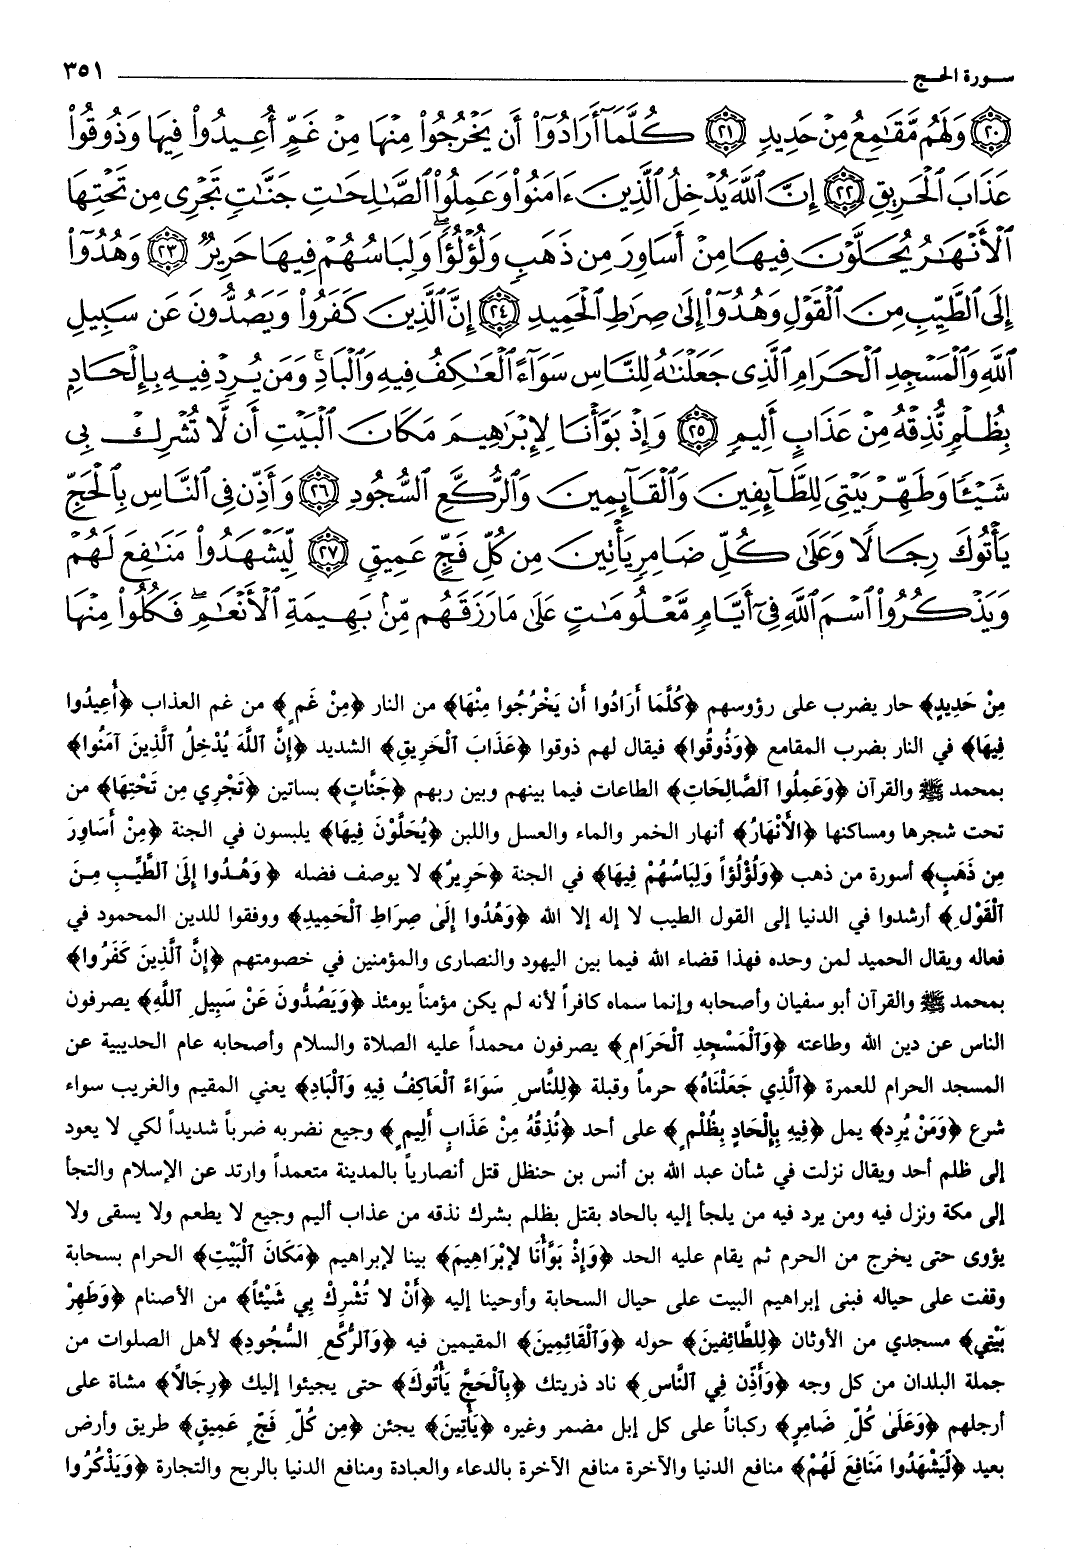 سورة الحج ٣٥١
﴿٢٠﴾ وَلَهُم مَّقَٰمِعُ مِنْ حَدِيدٍ ﴿٢١﴾ كُلَّمَآ أَرَادُوٓا۟ أَن يَخْرُجُوا۟ مِنْهَا مِنْ غَمٍّ أُعِيدُوا۟ فِيهَا وَذُوقُوا۟
عَذَابَ ٱلْحَرِيقِ ﴿٢٢﴾ إِنَّ ٱللَّهَ يُدْخِلُ ٱلَّذِينَ ءَامَنُوا۟ وَعَمِلُوا۟ ٱلصَّٰلِحَٰتِ جَنَّٰتٍ تَجْرِى مِن تَحْتِهَا
ٱلْأَنْهَٰرُ يُحَلَّوْنَ فِيهَا مِنْ أَسَاوِرَ مِن ذَهَبٍ وَلُؤْلُؤًا ۖ وَلِبَاسُهُمْ فِيهَا حَرِيرٌ ﴿٢٣﴾ وَهُدُوٓا۟
إِلَى ٱلطَّيِّبِ مِنَ ٱلْقَوْلِ وَهُدُوٓا۟ إِلَىٰ صِرَٰطِ ٱلْحَمِيدِ ﴿٢٤﴾ إِنَّ ٱلَّذِينَ كَفَرُوا۟ وَيَصُدُّونَ عَن سَبِيلِ
ٱللَّهِ وَٱلْمَسْجِدِ ٱلْحَرَامِ ٱلَّذِى جَعَلْنَٰهُ لِلنَّاسِ سَوَآءً ٱلْعَٰكِفُ فِيهِ وَٱلْبَادِ ۚ وَمَن يُرِدْ فِيهِ بِإِلْحَادٍۭ
بِظُلْمٍ نُّذِقْهُ مِنْ عَذَابٍ أَلِيمٍ ﴿٢٥﴾ وَإِذْ بَوَّأْنَا لِإِبْرَٰهِيمَ مَكَانَ ٱلْبَيْتِ أَن لَّا تُشْرِكْ بِى
شَيْـًٔا وَطَهِّرْ بَيْتِىَ لِلطَّآئِفِينَ وَٱلْقَآئِمِينَ وَٱلرُّكَّعِ ٱلسُّجُودِ ﴿٢٦﴾ وَأَذِّن فِى ٱلنَّاسِ بِٱلْحَجِّ
يَأْتُوكَ رِجَالًا وَعَلَىٰ كُلِّ ضَامِرٍ يَأْتِينَ مِن كُلِّ فَجٍّ عَمِيقٍ ﴿٢٧﴾ لِّيَشْهَدُوا۟ مَنَٰفِعَ لَهُمْ
وَيَذْكُرُوا۟ ٱسْمَ ٱللَّهِ فِىٓ أَيَّامٍ مَّعْلُومَٰتٍ عَلَىٰ مَا رَزَقَهُم مِّنۢ بَهِيمَةِ ٱلْأَنْعَٰمِ ۖ فَكُلُوا۟ مِنْهَا
مِنْ حَدِيدٍ﴾ حار يضرب على رؤوسهم ﴿كُلَّمَا أَرَادُوا أَن يَخْرُجُوا مِنْهَا﴾ من النار ﴿مِنْ غَمٍ﴾ من غم العذاب ﴿أُعِيدُوا
فِيهَا﴾ في النار بضرب المقامع ﴿وَذُوقُوا﴾ فيقال لهم ذوقوا ﴿عَذَابَ ٱلْحَرِيقِ﴾ الشديد ﴿إِنَّ ٱللَّهَ يُدْخِلُ ٱلَّذِينَ آمَنُوا﴾
بمحمد ﷺ والقرآن ﴿وَعَمِلُوا ٱلصَّالِحَاتِ﴾ الطاعات فيما بينهم وبين ربهم ﴿جَنَّاتٍ﴾ بساتين ﴿تَجْرِي مِن تَحْتِهَا﴾ من
تحت شجرها ومساكنها ﴿الأَنْهَارُ﴾ أنهار الخمر والماء والعسل واللبن ﴿يُحَلَّوْنَ فِيهَا﴾ يلبسون في الجنة ﴿مِنْ أَسَاوِرَ
مِن ذَهَبٍ﴾ أسورة من ذهب ﴿وَلُؤْلُؤاً وَلِبَاسُهُمْ فِيهَا﴾ في الجنة ﴿حَرِيرٌ﴾ لا يوصف فضله ﴿وَهُدُوا إِلَىٰ ٱلطَّيِّبِ مِنَ
ٱلْقَوْلِ﴾ أرشدوا في الدنيا إلى القول الطيب لا إله إلا الله ﴿وَهُدُوا إِلَىٰ صِرَاطِ ٱلْحَمِيدِ﴾ ووفقوا للدين المحمود في
فعاله ويقال الحميد لمن وحده فهذا قضاء الله فيما بين اليهود والنصارى والمؤمنين في خصومتهم ﴿إِنَّ ٱلَّذِينَ كَفَرُوا﴾
بمحمد ﷺ والقرآن أبو سفيان وأصحابه وإنما سماه كافراً لأنه لم يكن مؤمناً يومئذ ﴿وَيَصُدُّونَ عَنْ سَبِيلِ ٱللَّهِ﴾ يصرفون
الناس عن دين الله وطاعته ﴿وَٱلْمَسْجِدِ ٱلْحَرَامِ﴾ يصرفون محمداً عليه الصلاة والسلام وأصحابه عام الحديبية عن
المسجد الحرام للعمرة ﴿ٱلَّذِي جَعَلْنَاهُ﴾ حرماً وقبلة ﴿لِلنَّاسِ سَوَاءً ٱلْعَاكِفُ فِيهِ وَٱلْبَادِ﴾ يعني المقيم والغريب سواء
شرع ﴿وَمَنْ يُرِد﴾ يمل ﴿فِيهِ بِإِلْحَادٍ بِظُلْمٍ﴾ على أحد ﴿نُذِقْهُ مِنْ عَذَابٍ أَلِيمٍ﴾ وجيع نضربه ضرباً شديداً لكي لا يعود
إلى ظلم أحد ويقال نزلت في شأن عبد الله بن أنس بن حنظل قتل أنصارياً بالمدينة متعمداً وارتد عن الإسلام والتجأ
إلى مكة ونزل فيه ومن يرد فيه من يلجأ إليه بالحاد بقتل بظلم بشرك نذقه من عذاب أليم وجيع لا يطعم ولا يسقى ولا
يؤوى حتى يخرج من الحرم ثم يقام عليه الحد ﴿وَإِذْ بَوَّأْنَا لإِبْرَاهِيمَ﴾ بينا لإبراهيم ﴿مَكَانَ ٱلْبَيْتِ﴾ الحرام بسحابة
وقفت على حياله فبنى إبراهيم البيت على حيال السحابة وأوحينا إليه ﴿أَنْ لا تُشْرِكْ بِي شَيْئاً﴾ من الأصنام ﴿وَطَهِرْ
بَيْتِي﴾ مسجدي من الأوثان ﴿لِلطَّائِفينَ﴾ حوله ﴿وَٱلْقَائِمِينَ﴾ المقيمين فيه ﴿وَٱلرُّكَّعِ السُّجُودِ﴾ لأهل الصلوات من
جملة البلدان من كل وجه ﴿وَأَذِّن فِي ٱلنَّاسِ﴾ ناد ذريتك ﴿بِٱلْحَجِّ يَأْتُوكَ﴾ حتى يجيئوا إليك ﴿رِجَالاً﴾ مشاة على
أرجلهم ﴿وَعَلَىٰ كُلِّ ضَامِرٍ﴾ ركباناً على كل إبل مضمر وغيره ﴿يَأْتِينَ﴾ يجئن ﴿مِن كُلِّ فَجٍّ عَمِيقٍ﴾ طريق وأرض
بعيد ﴿لِّيَشْهَدُوا مَنَافِعَ لَهُمْ﴾ منافع الدنيا والآخرة منافع الآخرة بالدعاء والعبادة ومنافع الدنيا بالربح والتجارة ﴿وَيَذْكُرُوا